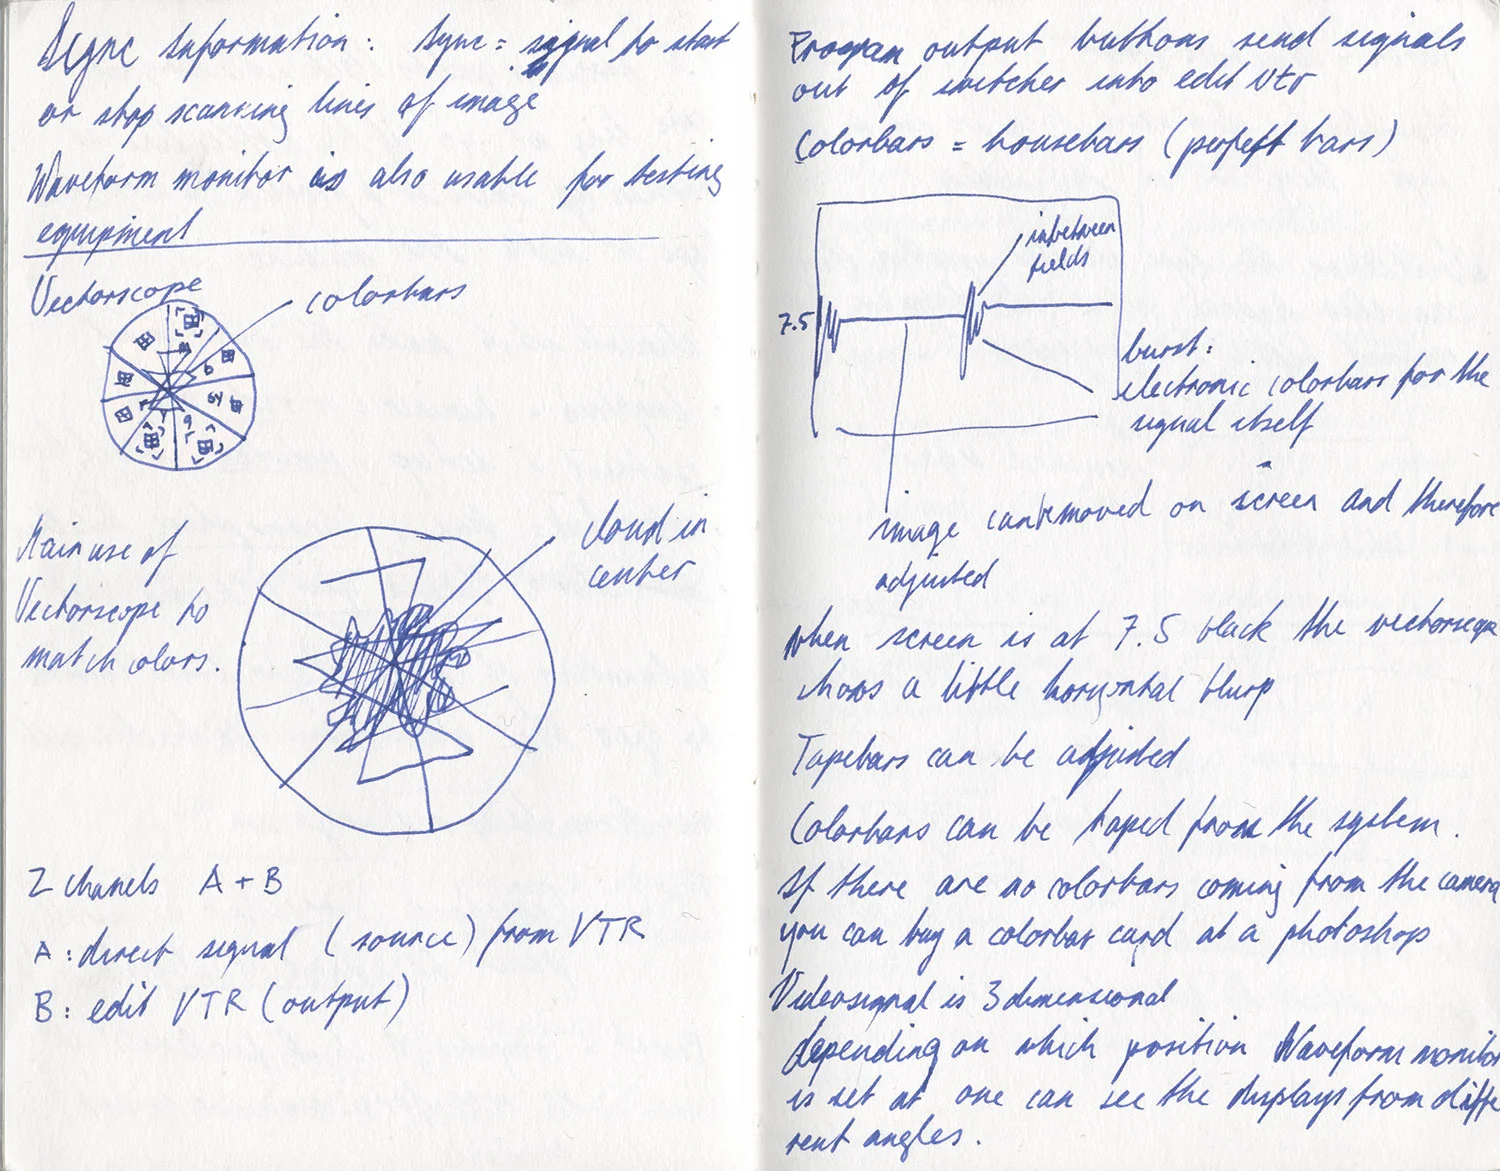 Sync Information: Sync = signal to start
or stop scanning lines of image
Waveform monitor is also usable for testing
equipment
Vectorscope
colorbars
Main use of
Vectorscope to
match colors.
cloud in
center
2 chanels A + B
A: direct signal (source) from VTR
B: edit VTR (output)
Program output buttons send signals
out of switcher into edit VTR
Colorbars = housebars (perfekt bars)
inbetween
fields
7.5
burst:
electronic colorbars for the
signal itself
image can moved on screen and therefore
adjusted
when screen is at 7.5 black the vectorscope
shows a little horizontal blurp
Tapebars can be adjusted
Colorbars can be taped from the system.
If there are no colorbars coming from the camera
you can buy a colorbar card at a photoshop
Videosignal is 3 dimensional
depending on which position Waveform monitor
is set at one can see the displays from diffe
rent angles.